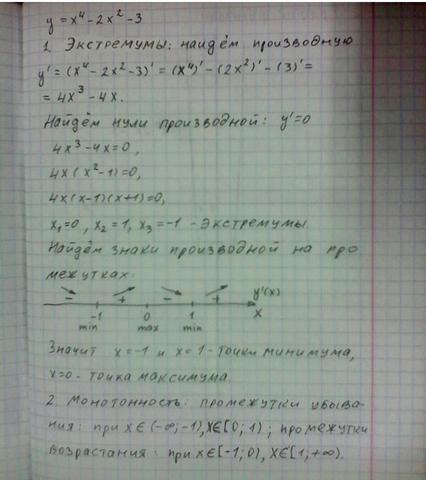 y = x⁴ - 2x² - 3
1. Экстремумы: найдём производную
y' = (x⁴ - 2x² - 3)' = (x⁴)' - (2x²)' - (3)' =
= 4x³ - 4x.
Найдём нули производной: y'=0
4x³ - 4x = 0,
4x(x² - 1) = 0,
4x(x-1)(x+1) = 0,
x₁=0, x₂=1, x₃=-1 - Экстремумы.
Найдём знаки производной на про
межутках:
- + - + y'(x)
-1 0 1 x
min max min
Значит x=-1 и x=1 - точки минимума,
x=0 - точка максимума.
2. Монотонность: промежутки убыва-
ния: при x∈(-∞;-1), x∈[0;1); промежутки
возрастания: при x∈[-1;0), x∈[1;+∞).